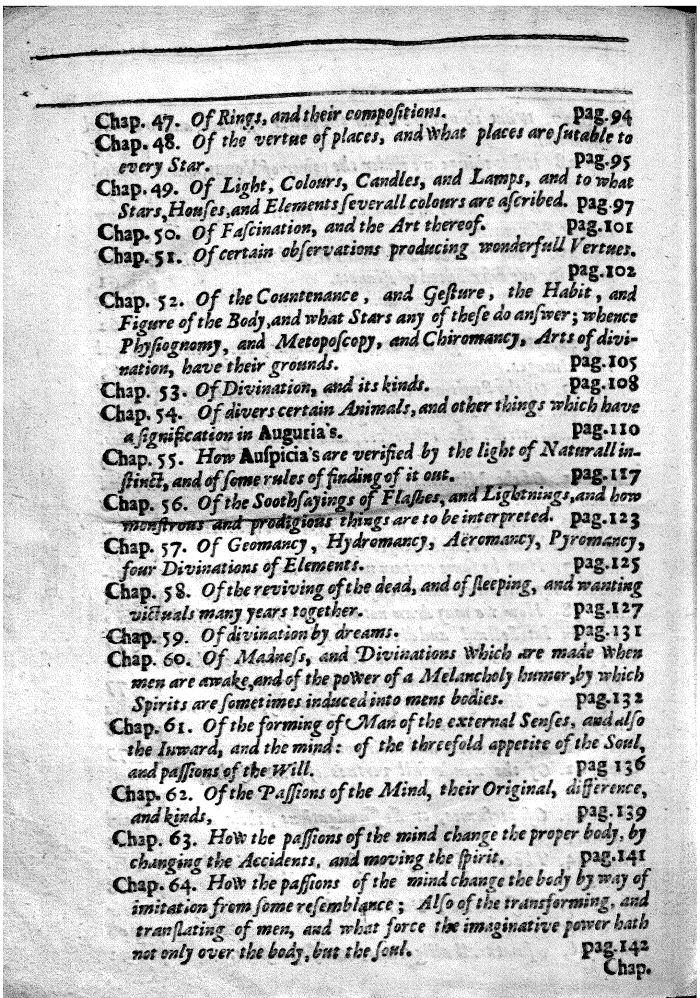 Chap. 47. Of Rings, and their compoſitions. pag.94
Chap. 48. Of the vertue of places, and what places are ſutable to
every Star. pag.95
Chap. 49. Of Light, Colours, Candles, and Lamps, and to what
Stars, Houſes, and Elements ſeverall colours are aſcribed. pag.97
Chap. 50. Of Faſcination, and the Art thereof. pag.101
Chap. 51. Of certain obſervations producing wonderfull Vertues.
pag.102
Chap. 52. Of the Countenance, and Geſture, the Habit, and
Figure of the Body, and what Stars any of theſe do anſwer; whence
Phyſiognomy, and Metopoſcopy, and Chiromancy, Arts of divi-
nation, have their grounds. pag.105
Chap. 53. Of Divination, and its kinds. pag.108
Chap. 54. Of divers certain Animals, and other things which have
a ſignification in Auguria's. pag.110
Chap. 55. How Auſpicia's are verified by the light of Naturall in-
ſtinct, and of ſome rules of finding of it out. pag.117
Chap. 56. Of the Soothſayings of Flaſhes, and Lightnings, and how
monſtrous and prodigious things are to be interpreted. pag.123
Chap. 57. Of Geomancy, Hydromancy, Aeromancy, Pyromancy,
four Divinations of Elements. pag.125
Chap. 58. Of the reviving of the dead, and of ſleeping, and wanting
victuals many years together. pag.127
Chap. 59. Of divination by dreams. pag.131
Chap. 60. Of Madneſs, and Divinations which are made when
men are awake, and of the power of a Melancholy humor, by which
Spirits are ſometimes induced into mens bodies. pag.132
Chap. 61. Of the forming of Man of the external Senſes, and alſo
the Inward, and the mind: of the threefold appetite of the Soul,
and paſſions of the Will. pag 136
Chap. 62. Of the Paſſions of the Mind, their Original, difference,
and kinds, pag.139
Chap. 63. How the paſſions of the mind change the proper body, by
changing the Accidents, and moving the ſpirit. pag.141
Chap. 64. How the paſſions of the mind change the body by way of
imitation from ſome reſemblance; Alſo of the transforming, and
tranſlating of men, and what force the imaginative power hath
not only over the body, but the ſoul. pag.142
Chap.